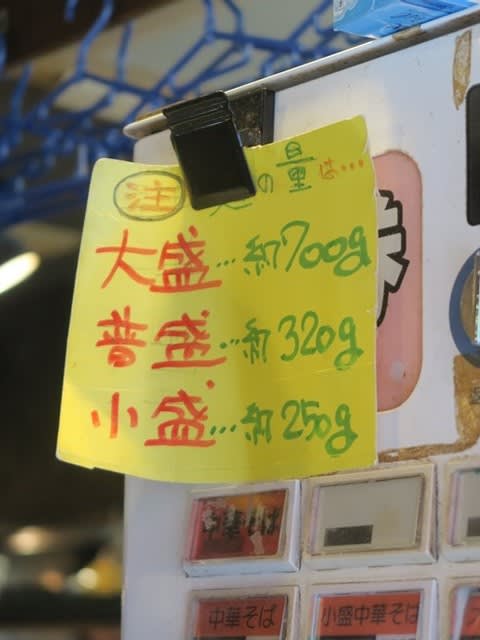 注 の量は…
大盛…約700g
普盛…約320g
小盛…約250g
中華そば
中華そば
小盛中華そば